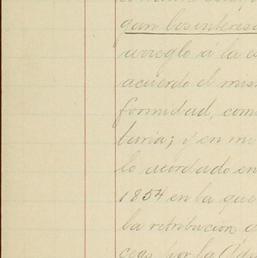 gan los interes
arreglo á la es
acuerdo el mis
formidad, com
taria; y en
lo acordado en
1854 en la que
la retribucion
por la